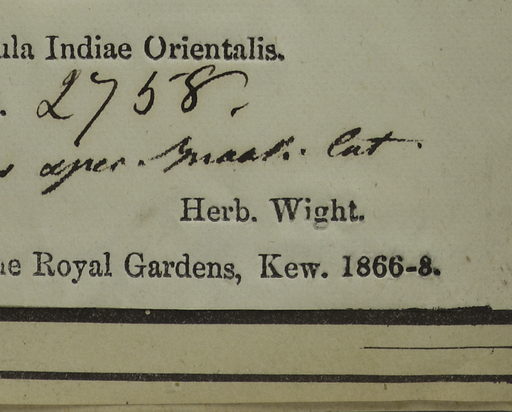 ula Indiae Orientalis.
. 2758.
Cat.
Herb. Wight.
he Royal Gardens, Kew. 1866-8.